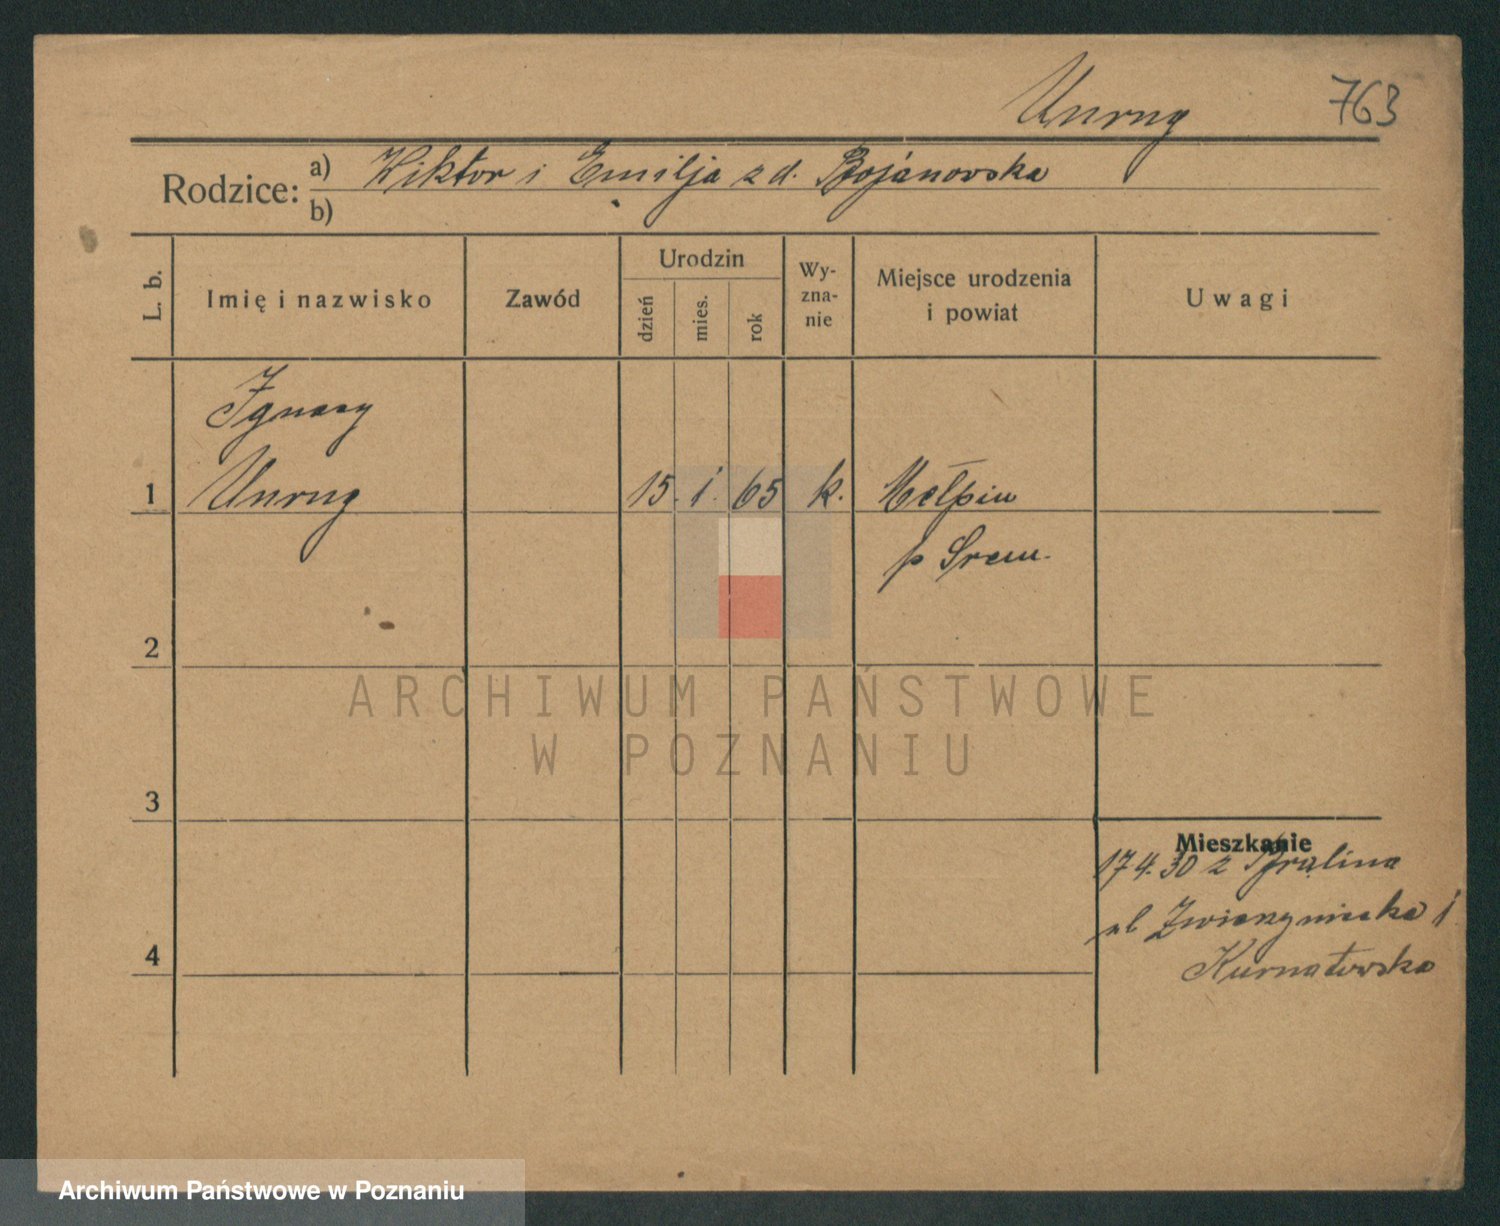 Unrug 763
Rodzice: a) Wiktor i Emilja z d. Bojanowska
b)
L. b.
Imię i nazwisko
Zawód
Urodzin
dzień
mies.
rok
Wy-
zna-
nie
Miejsce urodzenia
i powiat
Uwagi
Ignacy
1 Unrug 15. 1. 65 k. Mełpin
p Srem.
2
ARCHIWUM PAŃSTWOWE
W POZNANIU
3
Mieszkanie
17 4. 30 z
ul Zwierzyniecka 1
4 Kurnatowska
Archiwum Państwowe w Poznaniu